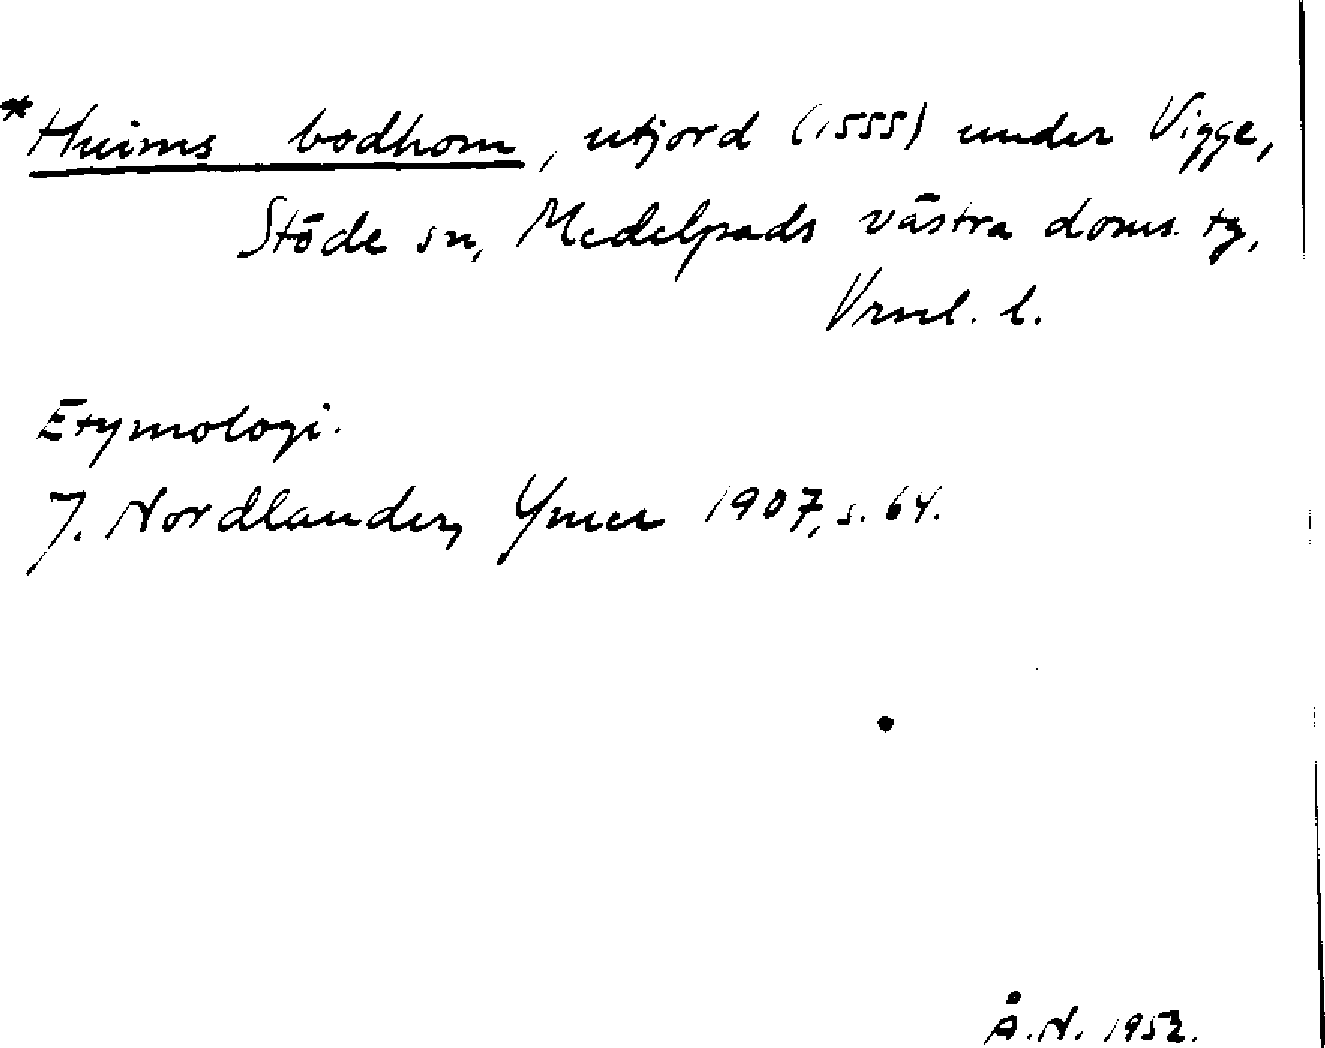 *Huims bodhom, utjord (1555) under Vigge,
Stöde sn, Medelpads västra doms. tg,
Vrnl. l.
Etymologi.
J. Nordlander, Ymer 1907, s. 64.
Å.N. 1952.